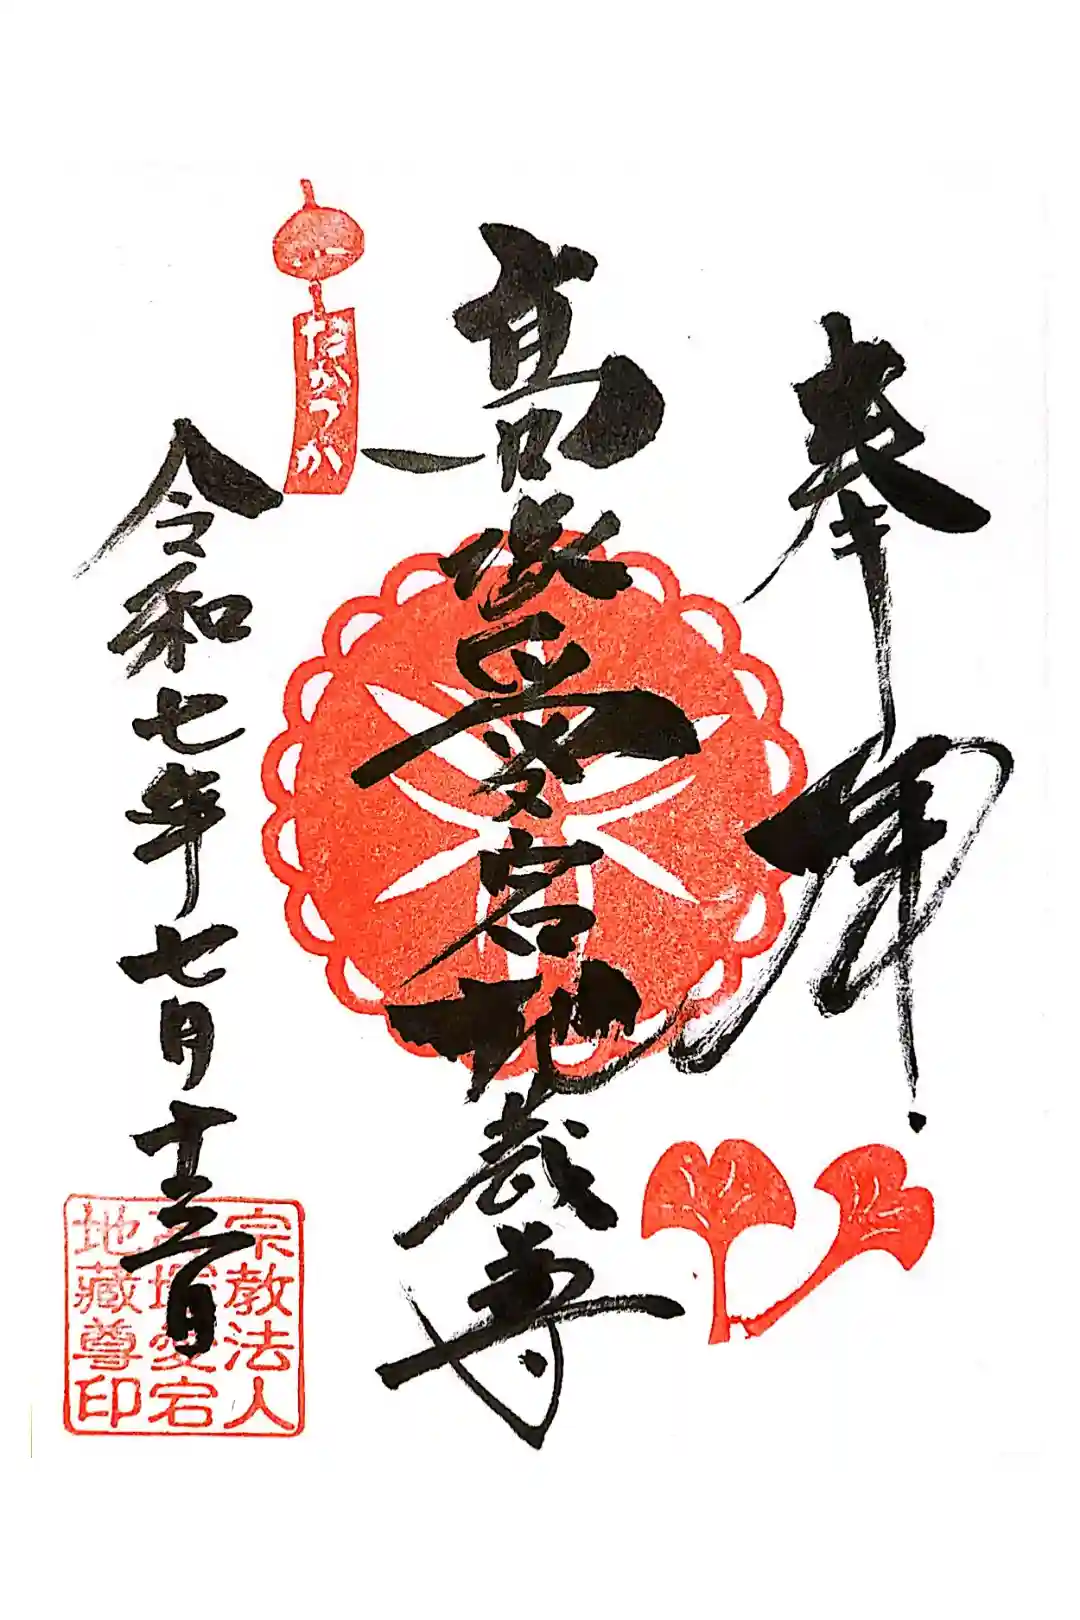 奉拝
髙塚愛宕地蔵尊
たかつか
令和七年七月十三日
宗教法人
高塚愛宕
地藏尊印